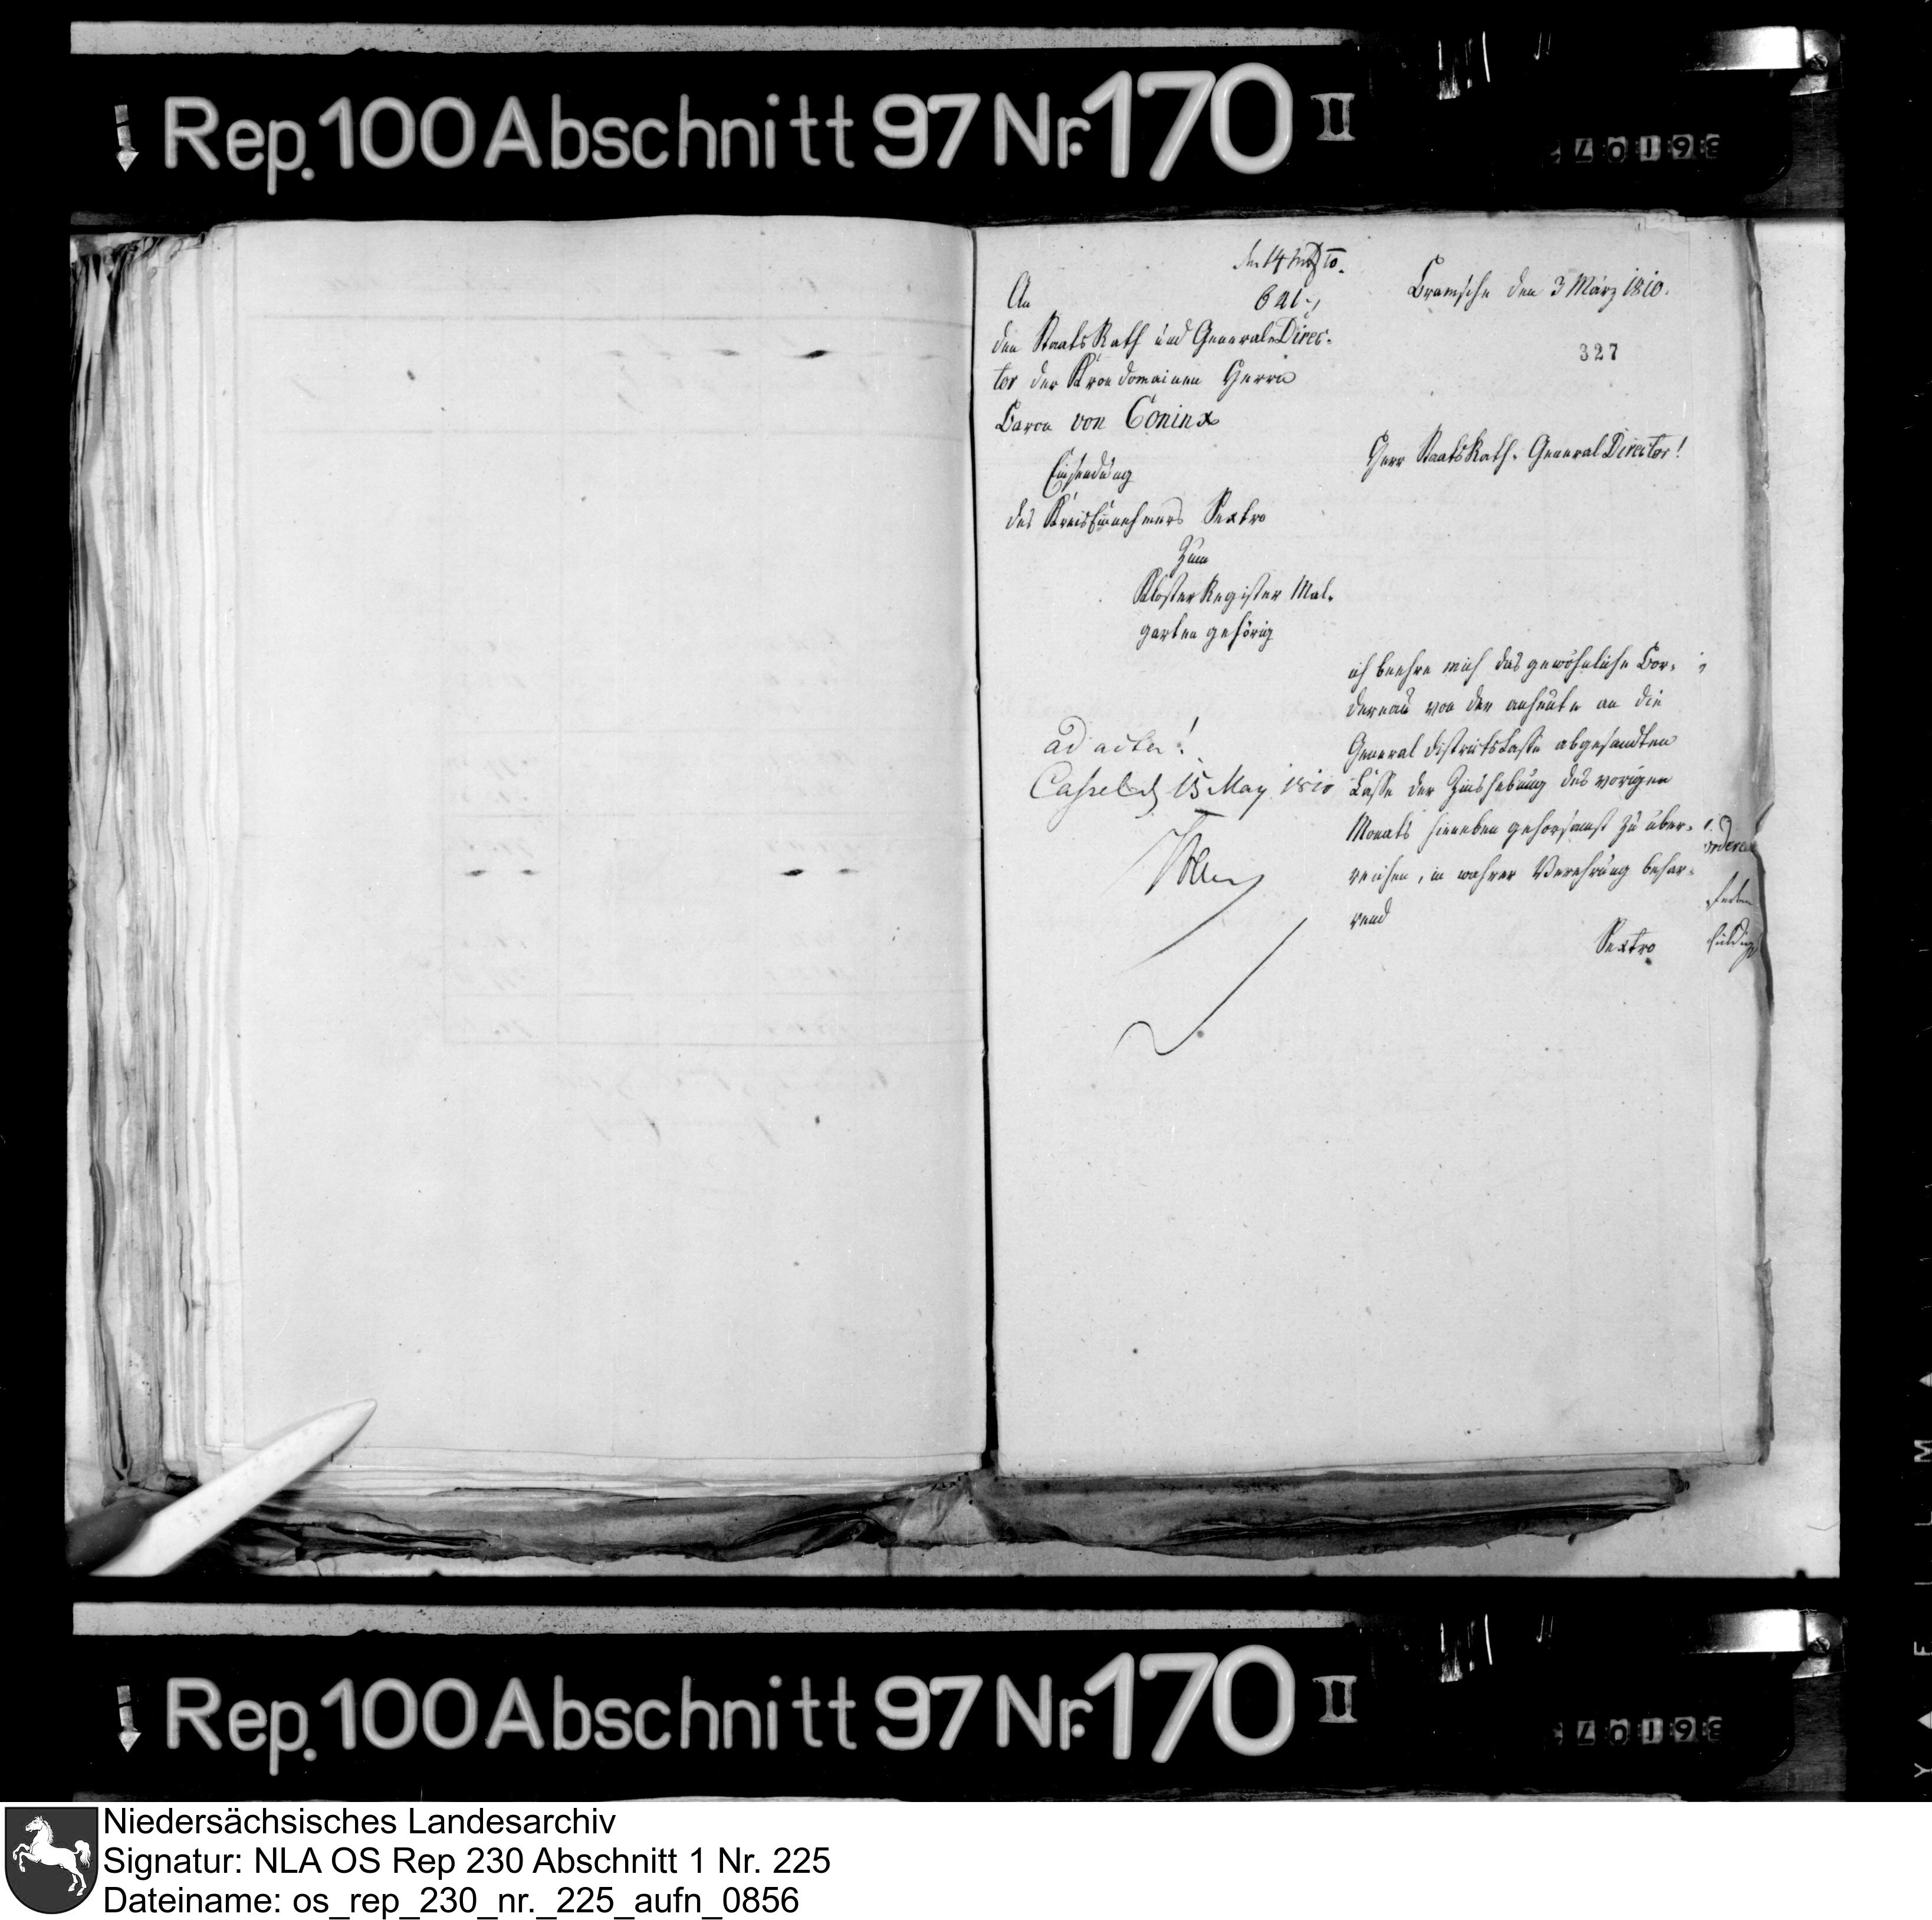 Rep. 100 Abschnitt 97 Nr. 170 II
den 14
An
641.
Bramsche den 3 März 1810.
den StaatsRath und General-Direc-
tor der Krondomainen Herrn
Baron von Coninx
327
Einsendung
des KreisEinnehmers Sextro
zum
KlosterRegister Mal-
garten gehörig
ad acta!
Cassel d 15 May 1810
Herr StaatsRath- General Director!
ich beehre mich das gewöhnliche Bor-
dereau von der anheute an die
General districtsCasse abgesandten
Casse der Zinshebung des vorigen
Monats hieneben gehorsamst zu über-
reichen, in wahrer Verehrung behar-
rend
Sextro
Rep. 100 Abschnitt 97 Nr. 170 II
Niedersächsisches Landesarchiv
Signatur: NLA OS Rep 230 Abschnitt 1 Nr. 225
Dateiname: os_rep_230_nr._225_aufn_0856